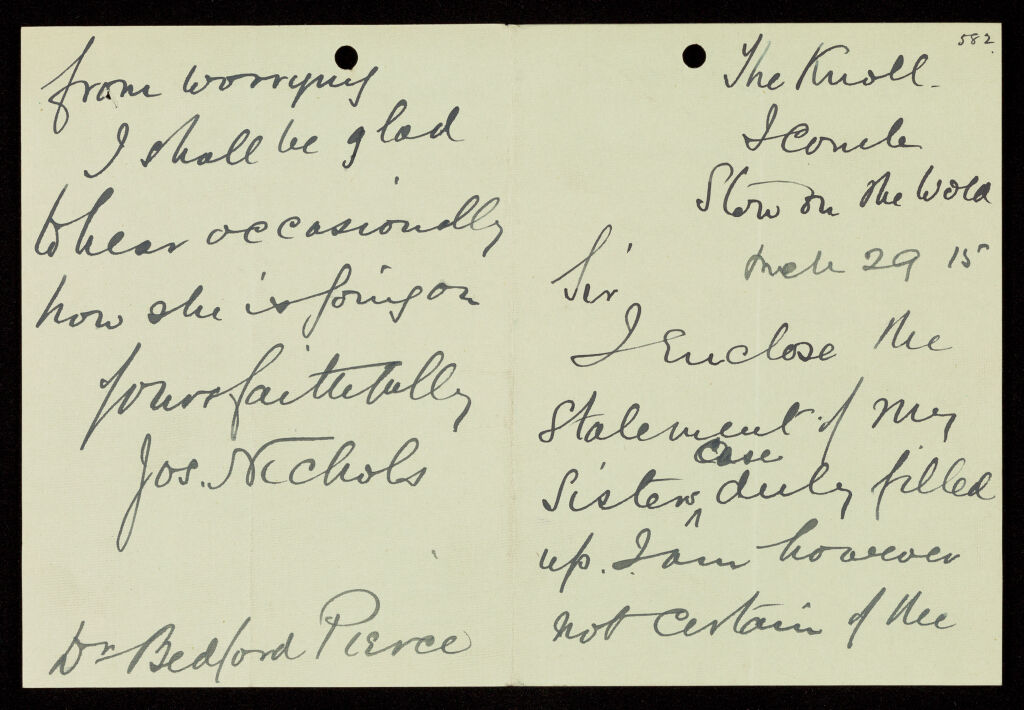 from worrying
I shall be glad
to hear occasionally
how she is going on
Yours faithfully
Jos. Nichols
Dr Bedford Pierce
582
The Knoll.
Icomb
Stow on the Wold
Mch 29 15
Sir
I Enclose the
Statement of my
case
Sisters ^ duly filled
up. I am however
not certain of the